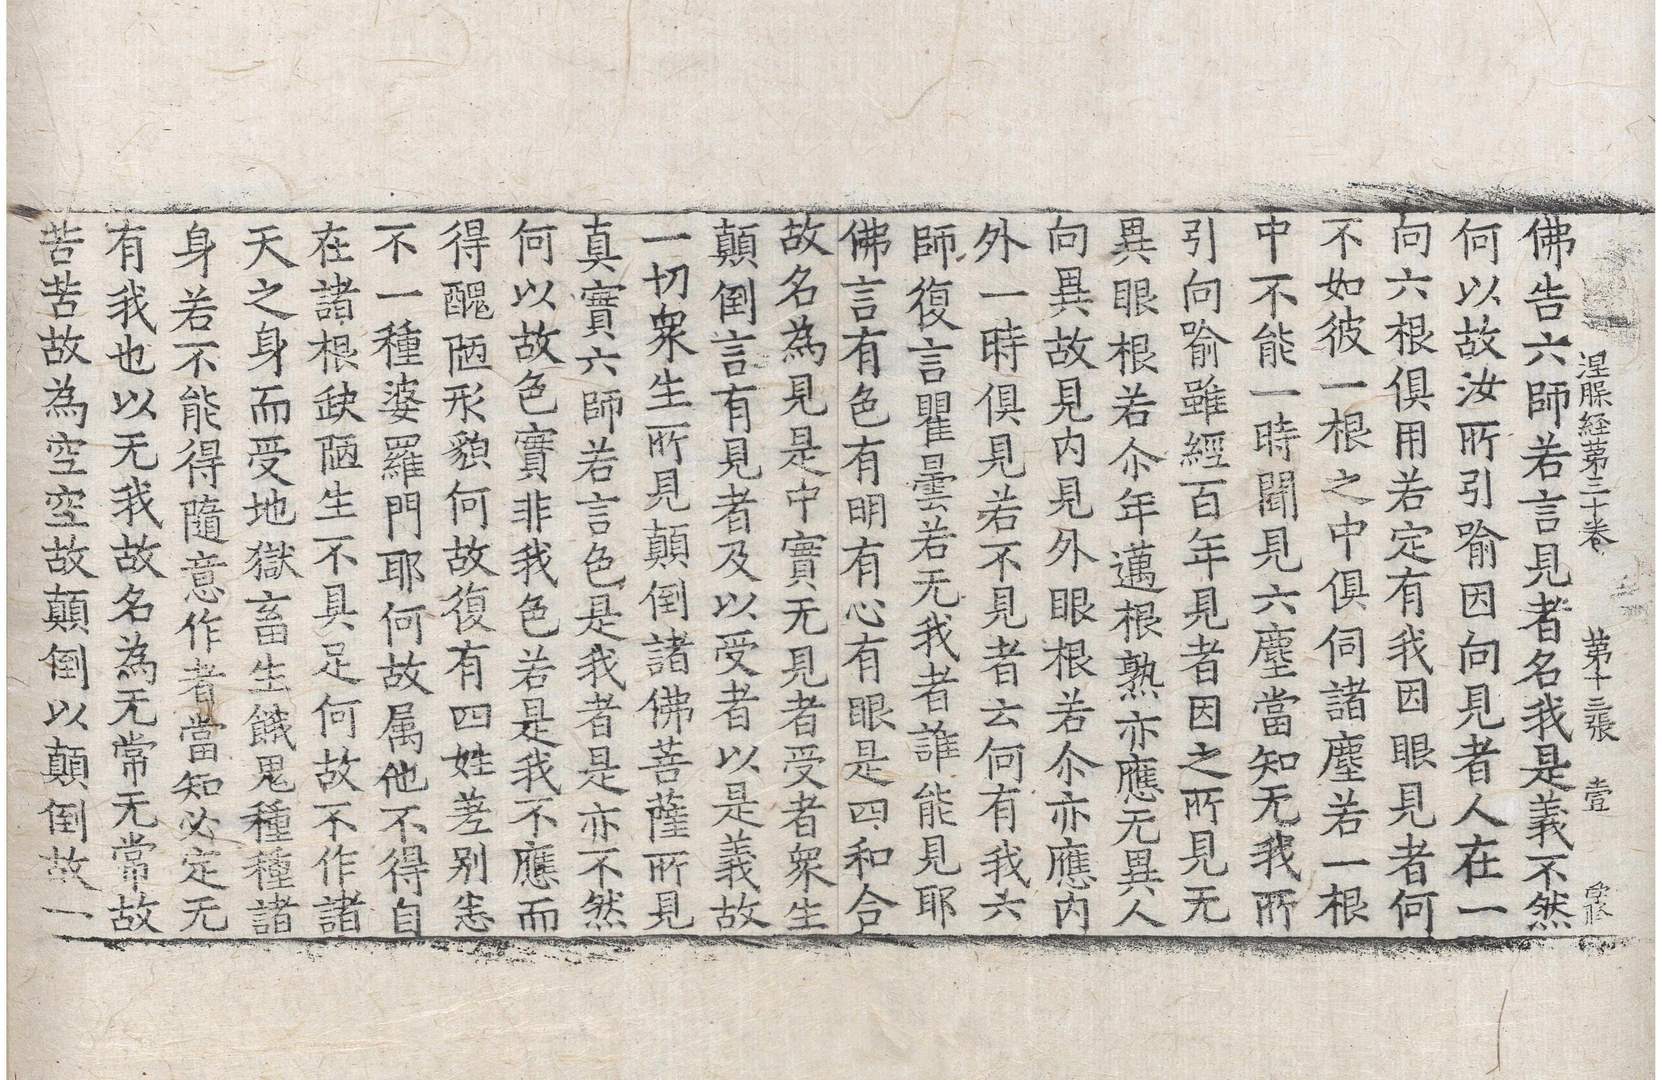 涅槃経第三十卷 第十三張 壹
佛告六師若言見者名我是義不然
何以故汝所引喻因向見者人在一
向六根俱用若定有我因眼見者何
不如彼一根之中俱伺諸塵若一根
中不能一時聞見六塵當知无我所
引向喻雖經百年見者因之所見无
異眼根若尒年邁根熟亦應无異人
向異故見內見外眼根若尒亦應內
外一時俱見若不見者云何有我六
師復言瞿曇若无我者誰能見耶
佛言有色有明有心有眼是四和合
故名為見是中實无見者受者衆生
顛倒言有見者及以受者以是義故
一切衆生所見顛倒諸佛菩薩所見
真實六師若言色是我者是亦不然
何以故色實非我色若是我不應而
得醜陋形貌何故復有四姓差别悉
不一種婆羅門耶何故属他不得自
在諸根缺陋生不具足何故不作諸
天之身而受地獄畜生餓鬼種種諸
身若不能得隨意作者當知必定无
有我也以无我故名為无常无常故
苦苦故為空空故顛倒以顛倒故一